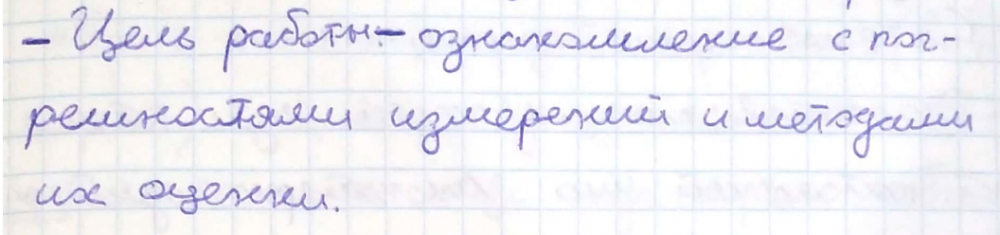 - Цель работы:- ознакомление с пог-
решностями измерений и методами
их оценки.